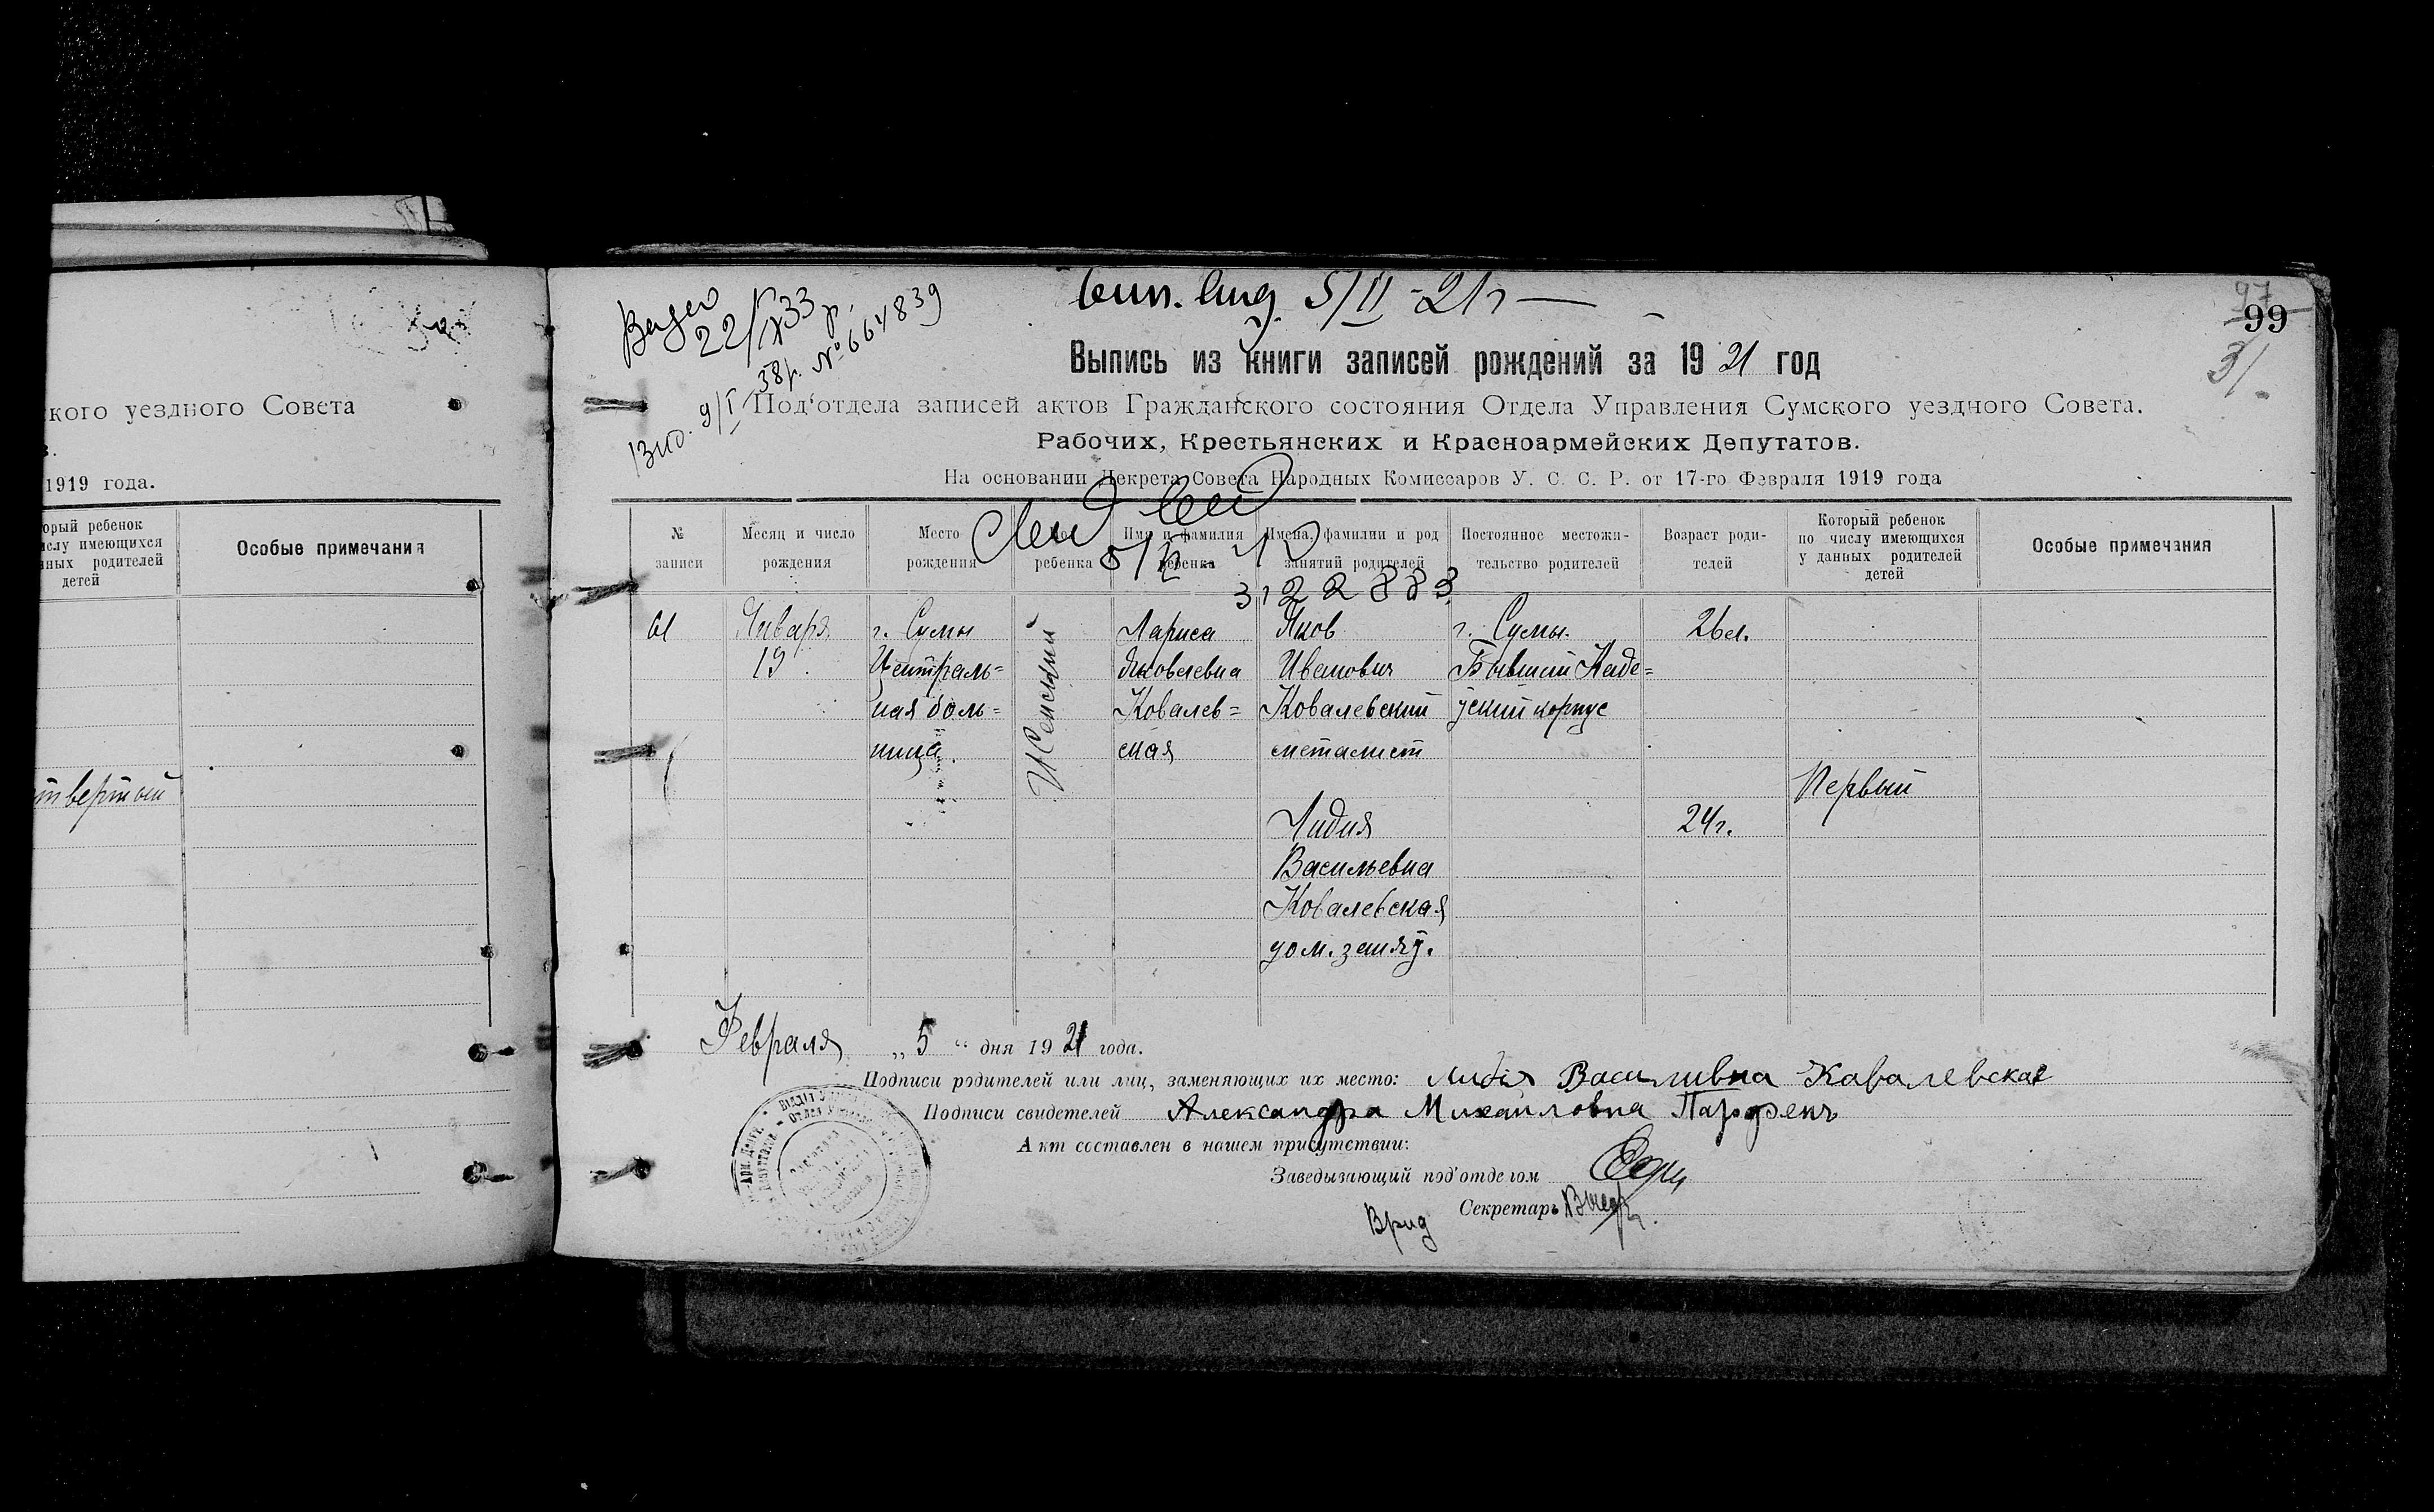 кого уездного Совета
1919 года.
орый ребенок
ислу имеющихся
нных родителей
детей
Особые примечания
твертый
вып. выд. 5/II - 21 г
22/IX 33 р.
9/I 38 р. № 664839
97
99
3/
Выпись из книги записей рождений за 1921 год
Под'отдела записей актов Гражданского состояния Отдела Управления Сумского уездного Совета.
Рабочих, Крестьянских и Красноармейских Депутатов.
На основании Декрета Совета Народных Комиссаров У. С. С. Р. от 17-го Февраля 1919 года
№ записи
Месяц и число рождения
Место рождения
Пол ребенка
Имя и фамилия ребенка
Имена, фамилии и род занятий родителей
Постоянное местожи-тельство родителей
Возраст роди-телей
Который ребенок по числу имеющихся у данных родителей детей
Особые примечания
312288
61
Января
19
г. Сумы
Централь=
ная боль=
ница
Женский
Лариса
Яковлевна
Ковалев=
ская
Яков
Иванович
Ковалевский
металист
г. Сумы.
Бывший Каде=
тский корпус
26 л.
Первый
Лидия
Васильевна
Ковалевская
дом. занят.
24 г.
Февраля „5“ дня 1921 года.
Подписи родителей или лиц, заменяющих их место: Лидія Василивна Кавалевская
Подписи свидетелей Александра Михайловна Парфенъ
Акт составлен в нашем присутствии:
Заведывающий под'отделом
Врид Секретарь